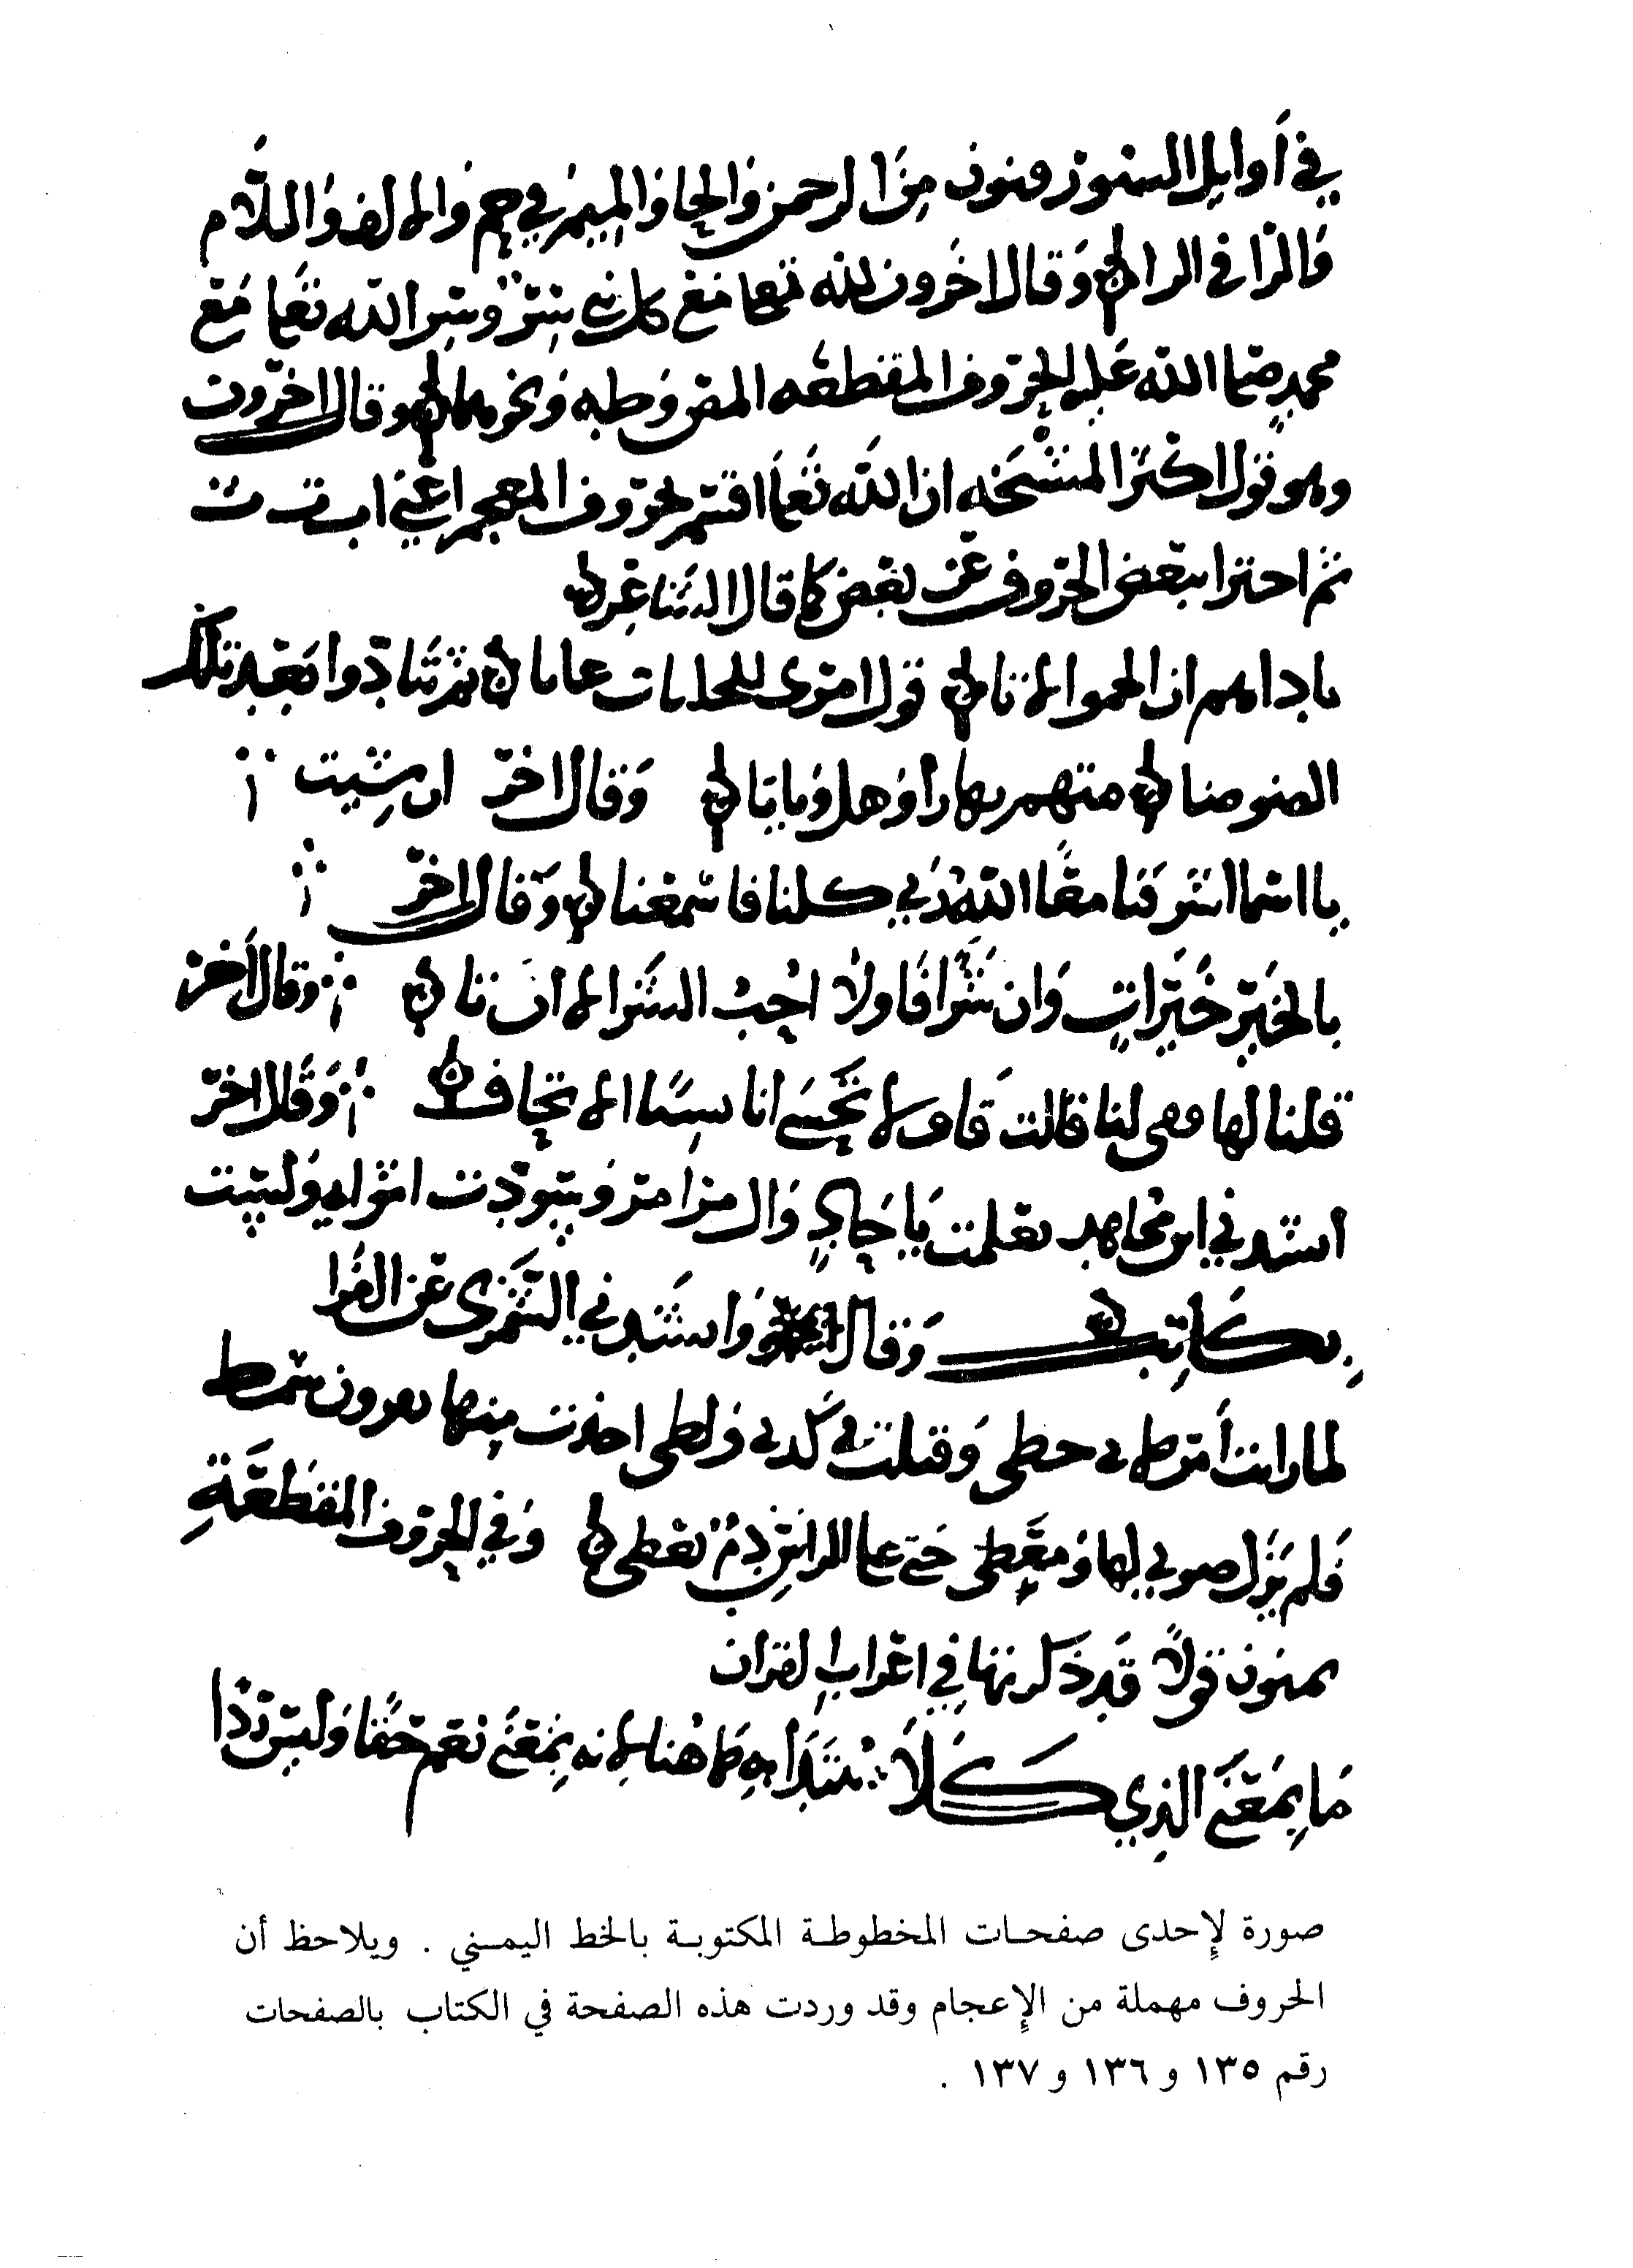 في أوايل السور فنون من الرحمن والحا والميم في حم والالف واللام
والرا في الر وقال اخرون لله تعلى مع كل نبي سر وسر الله تعلى مع
محمد صلى الله عليه الحروف المقطعه وقال اخرون
وهو قول اكثر ان الله تعلى اقسم بحروف المعجم اعني ا ب ت ث
ثم اجتزا ببعض الحروف عن بعض كما قال الشاعر
ثم تنادوا بعد تلك
الضوضا منهم بهات أو هل ويايا وقال اخر ان شيت
يا اسما اشرفنا معًا الله ربي كلنا فاسمعنا وقال اخر
بالخير خيرات وان شرا فا ولا احب الشر الا ان تا وقال اخر
قلنا لها قفي لنا فقالت قاف لا تحسبي انا نسينا الايجاف وقال اخر
انشدني ابن مجاهد تعلمت با جاد وال مرامر وسودت اثوابي ولست
بكاتب وقال وانشدني السمري عن الفرا
لما رايت أمرها في حطي وفنكت في كذبي ولطي اخذت منها بقرون شمط
فلم يزل صوبي لها ومعطي حتى على الراس دم يغطي وفي الحروف المقطعة
قولا قد ذكرتها في اعراب القران
ما بمعنى الذي كلا يبتدا به ها هنا لانه بمعنى نعم حقا وليس ردا
صورة لإحدى صفحات المخطوطة المكتوبة بالخط اليمني . ويلاحظ أن
الحروف مهملة من الإعجام وقد وردت هذه الصفحة في الكتاب بالصفحات
رقم ١٣٥ و ١٣٦ و ١٣٧ .